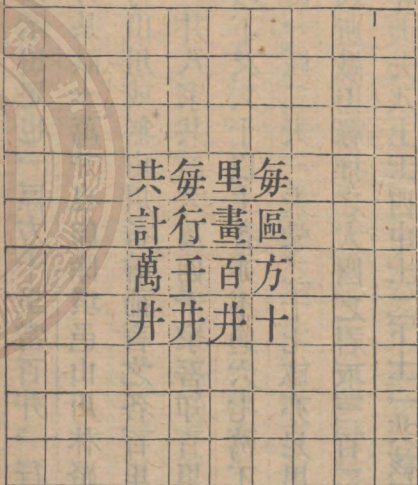 每區方十
里畫百井
每行千井
共計萬井